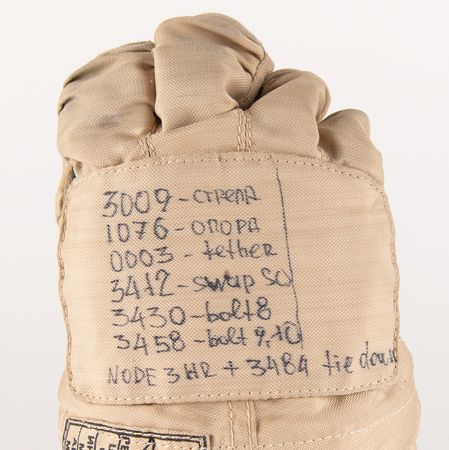 3009 - стрела
1076 - опора
0003 - tether
3412 - swap SO
3430 - bolt 8
3458 - bolt 9, 10
NODE 3 HR + 3484 tie down